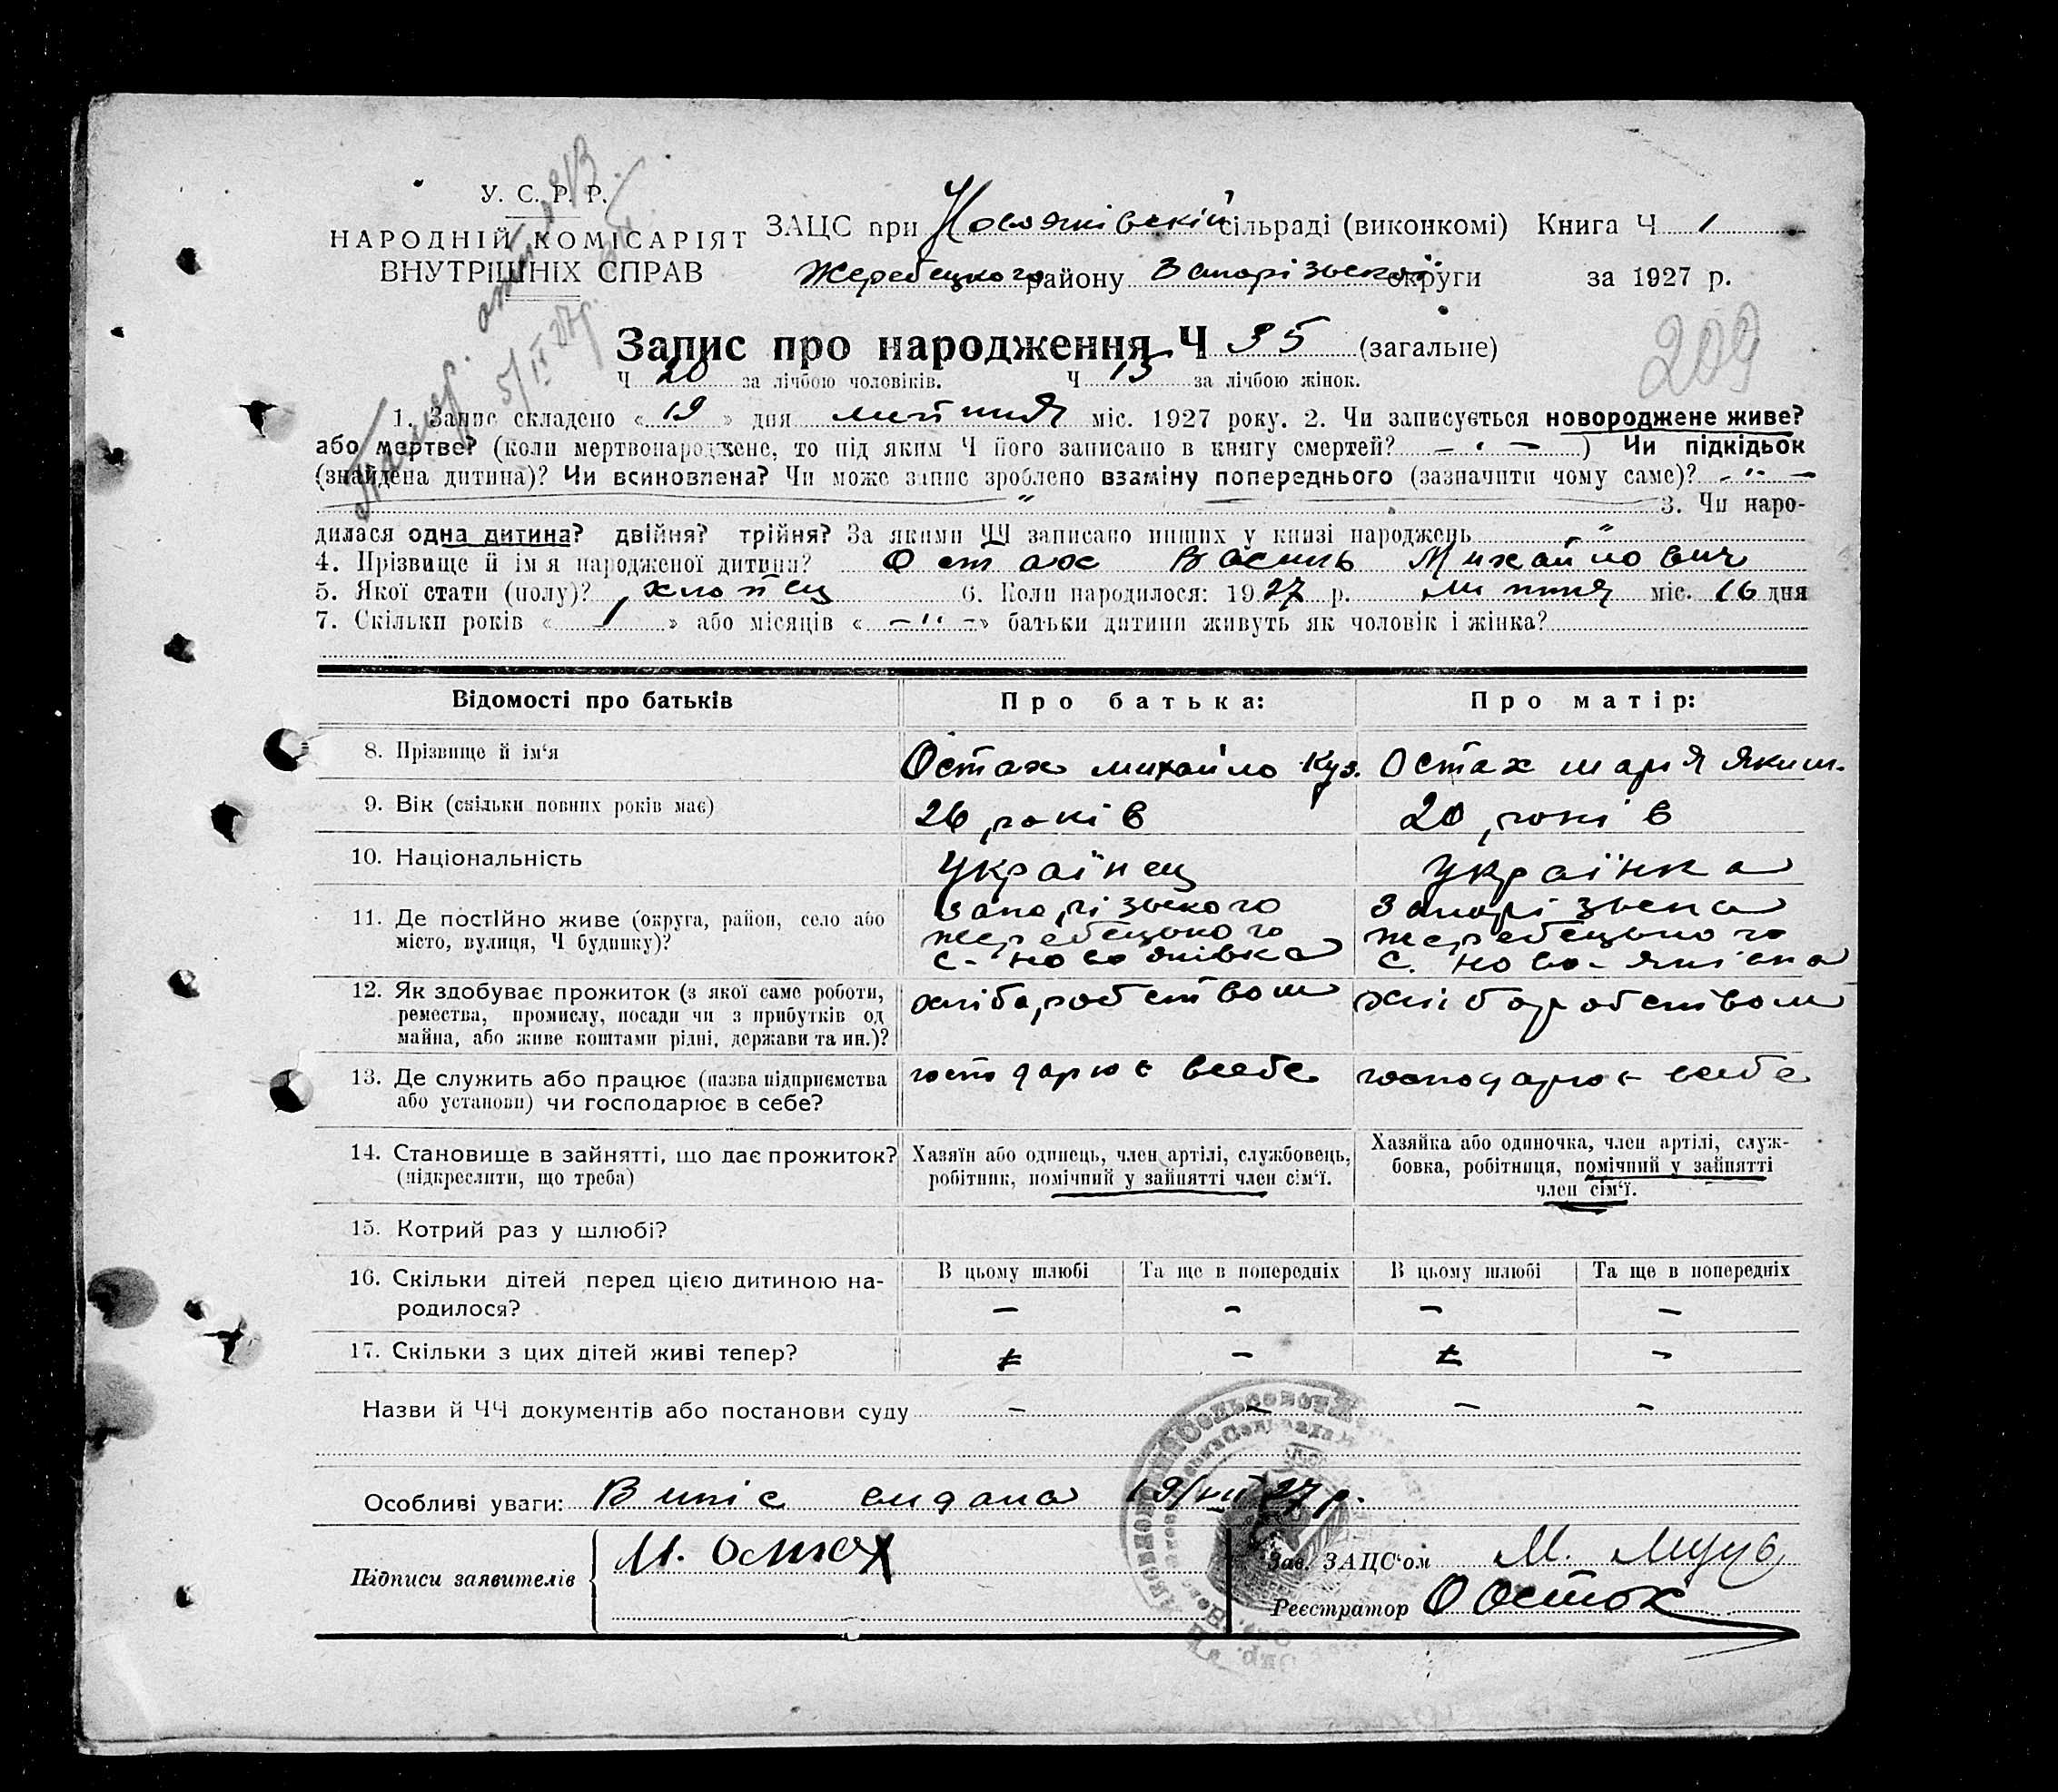 У. С. Р. Р.
НАРОДНІЙ КОМІСАРІЯТ
ВНУТРІШНІХ СПРАВ
ЗАЦС при Новояківській сільраді (виконкомі) Книга Ч 1
Жеребецкого району Запорізької округи за 1927 р.
Запис про народження Ч 35 (загальне)
209
Ч 20 за лічбою чоловіків. Ч 15 за лічбою жінок.
1. Запис складено « 19 » дня липня міс. 1927 року. 2. Чи записується новороджене живе?
або мертве? (коли мертвонароджене, то під яким Ч його записано в книгу смертей? — " — ) Чи підкідьок
(знайдена дитина)? Чи всиновлена? Чи може запис зроблено взаміну попереднього (зазначити чому саме)? - " -
" 3. Чи наро-
дилася одна дитина? двійня? трійня? За якими ЧЧ записано инших у книзі народжень "
4. Прізвище й ім'я народженої дитини? Остах Василь Михайлович
5. Якої стати (полу)? хлопец 6. Коли народилося: 1927 р. липня міс. 16 дня
7. Скільки років « 1 » або місяців « - " - » батьки дитини живуть як чоловік і жінка?
Відомості про батьків Про батька: Про матір:
8. Прізвище й ім'я Остах михайло Куз. Остах марія Яким.
9. Вік (скільки повних років має) 26 років 20 років
10. Національність Українец Українка
11. Де постійно живе (округа, район, село або
місто, вулиця, Ч будинку)?
Запорізького
жеребецького
с. новояківка
Запорізька
жеребецького
с. ново-яківка
12. Як здобуває прожиток (з якої саме роботи,
ремества, промислу, посади чи з прибутків од
майна, або живе коштами рідні, держави та ин.)?
хліборобством хліборобством
13. Де служить або працює (назва підприємства
або установи) чи господарює в себе?
господарює всебе господарює всебе
14. Становище в зайнятті, що дає прожиток?
(підкреслити, що треба)
Хазяїн або одинець, член артілі, службовець,
робітник, помічний у зайнятті член сім'ї.
Хазяйка або одиночка, член артілі, служ-
бовка, робітниця, помічний у зайнятті
член сім'ї.
15. Котрий раз у шлюбі?
16. Скільки дітей перед цією дитиною на-
родилося?
В цьому шлюбі Та ще в попередніх В цьому шлюбі Та ще в попередніх
— - — —
17. Скільки з цих дітей живі тепер? - -
Назви й ЧЧ документів або постанови суду — — — —
Особливі уваги: Випіс видана 19/VII 27 р.
Підписи заявителів М. Остах
Зав. ЗАЦС'ом М.
Реєстратор О Остах